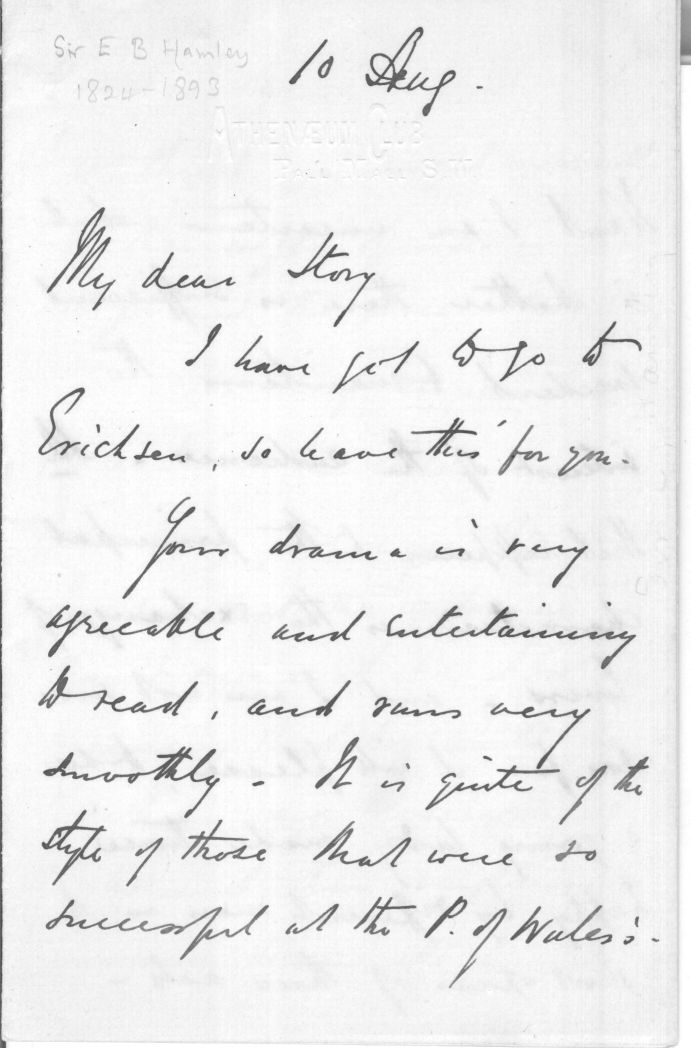 Sir E B Hamley
1824-1893
10 Aug.
ATHENÆUM CLUB
PALL MALL S.W.
My dear Story
I have got to go to
Erichsen, so leave this for you.
Your drama is very
agreeable and entertaining
to read, and runs very
smoothly - It is quite of the
style of those that were so
successful at the P. of Wales's.